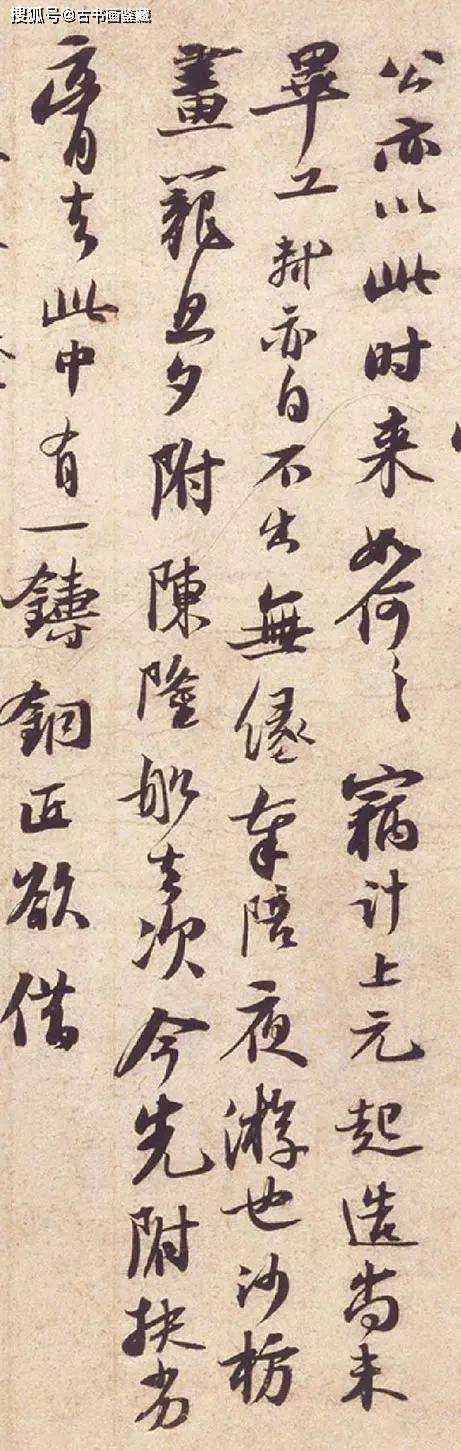 搜狐号@古书画鉴藏
公亦以此时来如何〻竊计上元起造尚未
畢工軾亦自不出無緣奉陪夜游也沙枋
畫籠旦夕附陳隆船去次今先附扶劣
膏去此中有一鑄銅匠欲借